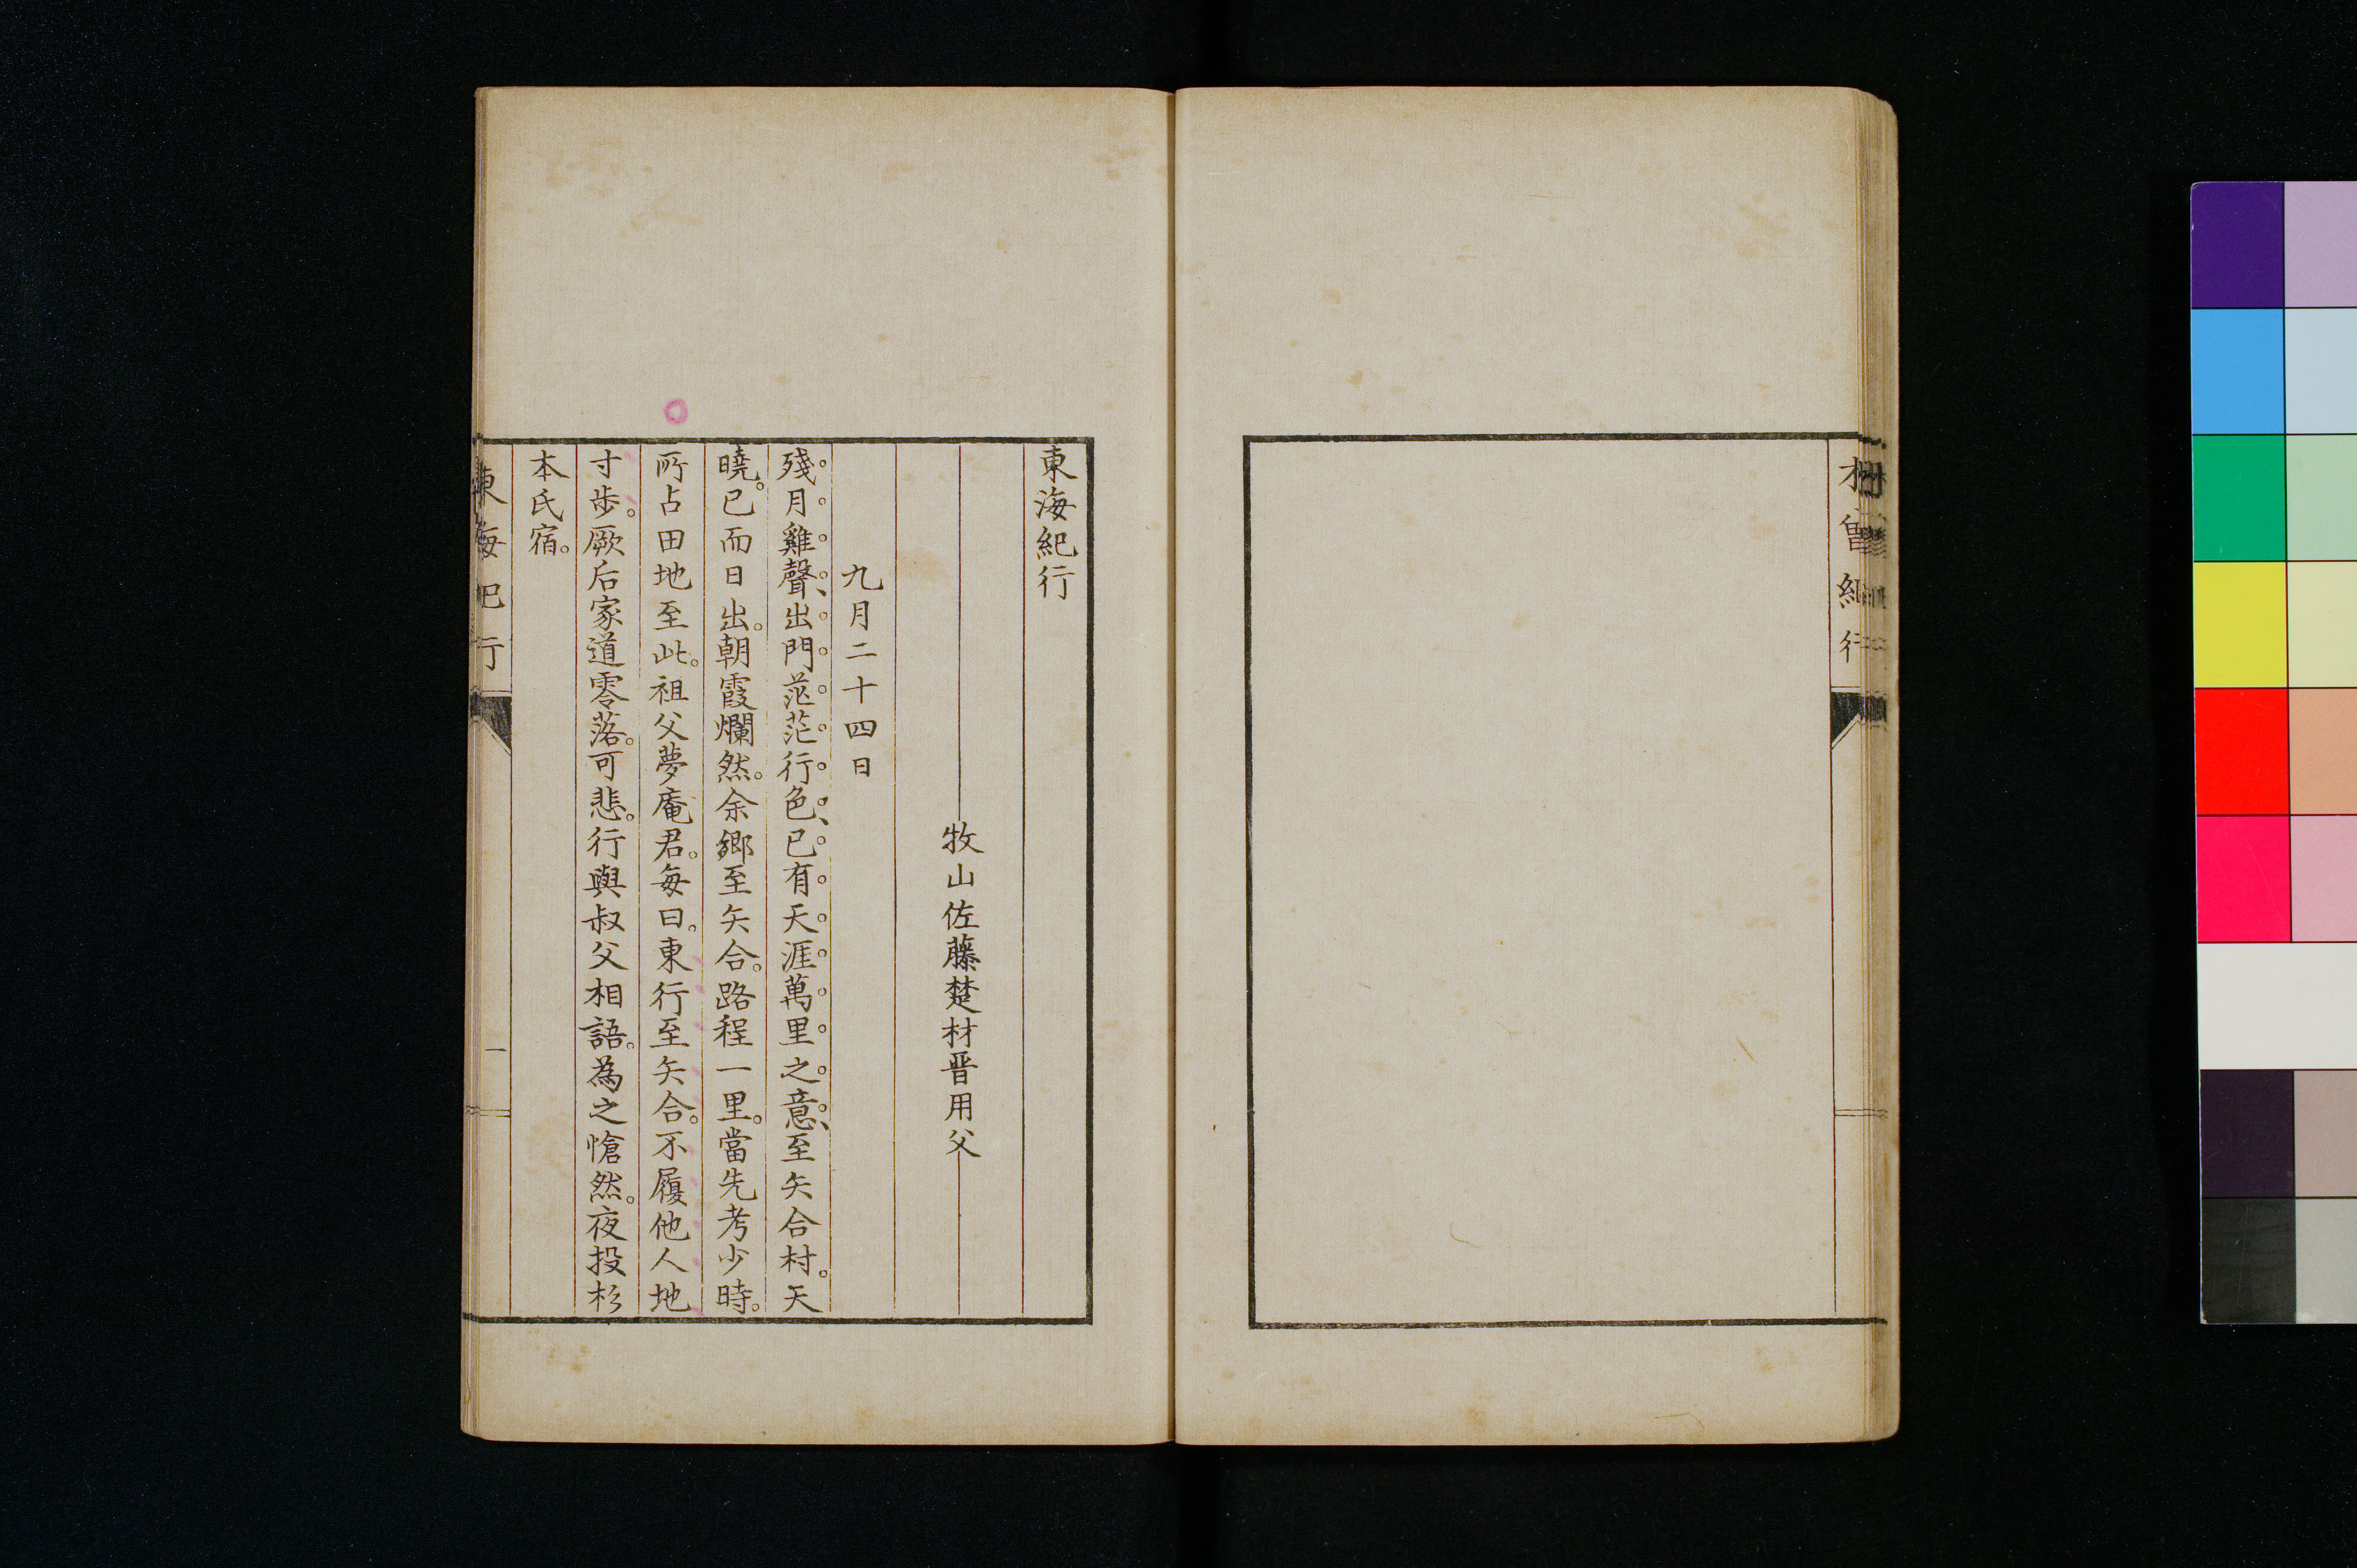 木曾紀行
東海紀行
牧山佐藤楚材晋用父
九月二十四日
殘月雞聲、出門茫茫行色、已有天涯萬里之意、至矢合村。天
曉。已而日出。朝霞爛然。余鄉至矢合。路程一里。當先考少時。
所占田地至此。祖父夢庵君。每曰。東行至矢合。不履他人地
寸步。厥后家道零落。可悲。行與叔父相語。為之愴然。夜投杉
本氏宿。
東海紀行
一